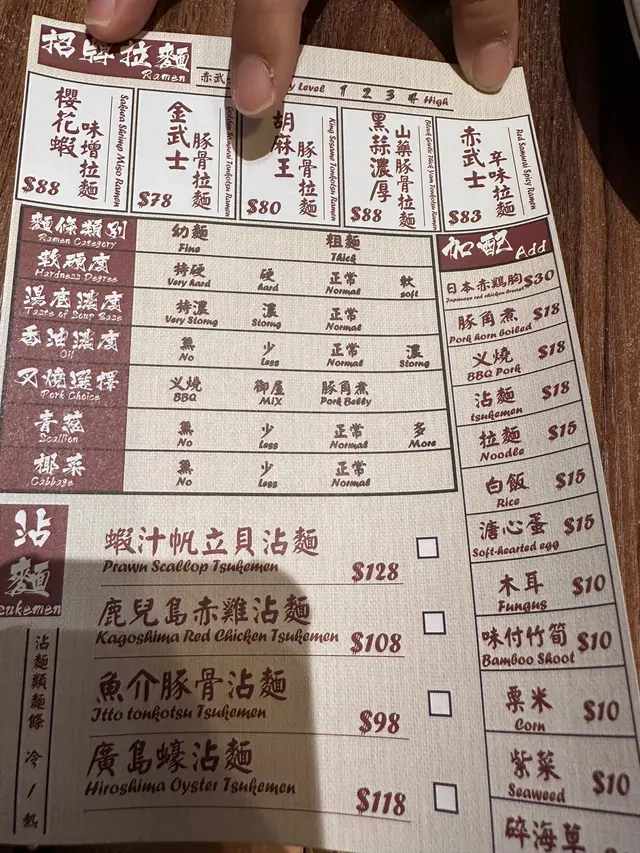 招牌拉麵
Ramen
赤武
Level 1 2 3 4 High
櫻花蝦
味增拉麵
Sakura Shrimp Miso Ramen
$88
金武士
豚骨拉麵
Golden Samurai Tonkotsu Ramen
$78
胡麻王
豚骨拉麵
King Sesame Tonkotsu Ramen
$80
黑蒜濃厚
山藥豚骨拉麵
Black Garlic Thick Yam Tonkotsu Ramen
$88
赤武士
辛味拉麵
Red Samurai Spicy Ramen
$83
麵條類別
Ramen Category
幼麵
Fine
粗麵
Thick
軟硬度
Hardness Degree
特硬
Very hard
硬
hard
正常
Normal
軟
soft
湯底濃度
Taste of Soup Base
特濃
Very Storng
濃
Storng
正常
Normal
香油濃度
Oil
無
No
少
Less
正常
Normal
濃
Storng
叉燒選擇
Pork Choice
义燒
BBQ
御屋
MIX
豚角煮
Pork Belly
青蔥
Scallion
無
No
少
Less
正常
Normal
多
More
椰菜
Cabbage
無
No
少
Less
正常
Normal
加配 Add
日本赤鶏胸 $30
Japanese red chicken breast
豚角煮 $18
Pork horn boiled
义燒 $18
BBQ Pork
沾麵 $18
tsukemen
拉麵 $15
Noodle
白飯 $15
Rice
溏心蛋 $15
Soft-hearted egg
木耳 $10
Fungus
味付竹筍 $10
Bamboo Shoot
粟米 $10
Corn
紫菜 $10
Seaweed
碎海草
沾麵
tsukemen
沾麵類麵條 冷/熱
蝦汁帆立貝沾麵
Prawn Scallop Tsukemen $128
鹿兒島赤雞沾麵
Kagoshima Red Chicken Tsukemen $108
魚介豚骨沾麵
Itto tonkotsu Tsukemen $98
廣島蠔沾麵
Hiroshima Oyster Tsukemen $118